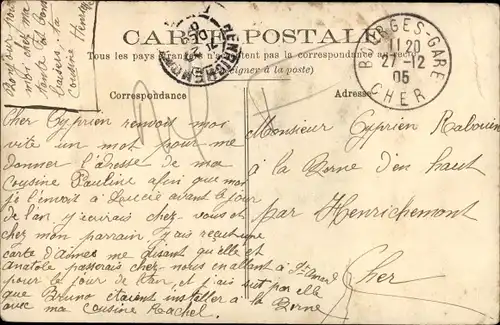 Bonjour pour
moi chez ma
tante et bons
baisers, ta
cousine
CARTE POSTALE
Tous les pays étrangers n'acceptent pas la correspondance au recto
(Se renseigner à la poste)
HENRICHEMONT
BOURGES-GARE
11 20
27-12
05
CHER
Correspondance
Adresse
Cher Cyprien renvois moi
vite un mot pour me
donner l'adresse de ma
cousine Pauline afin que moi
je l'envoit à Lucie avant le jour
de l'an, j'y écrirais chez vous et
chez mon parrain j'ais reçut une
carte d'Aimée me disant qu'elle et
Anatole passerais chez nous en allant à St-Amand
pour le jour de l'an, et j'ais suit par elle
que Bruno étaient installer à la Borne
avec ma cousine Rachel.
Monsieur Cyprien Rabouin
à la Borne d'en haut
par Henrichemont
Cher